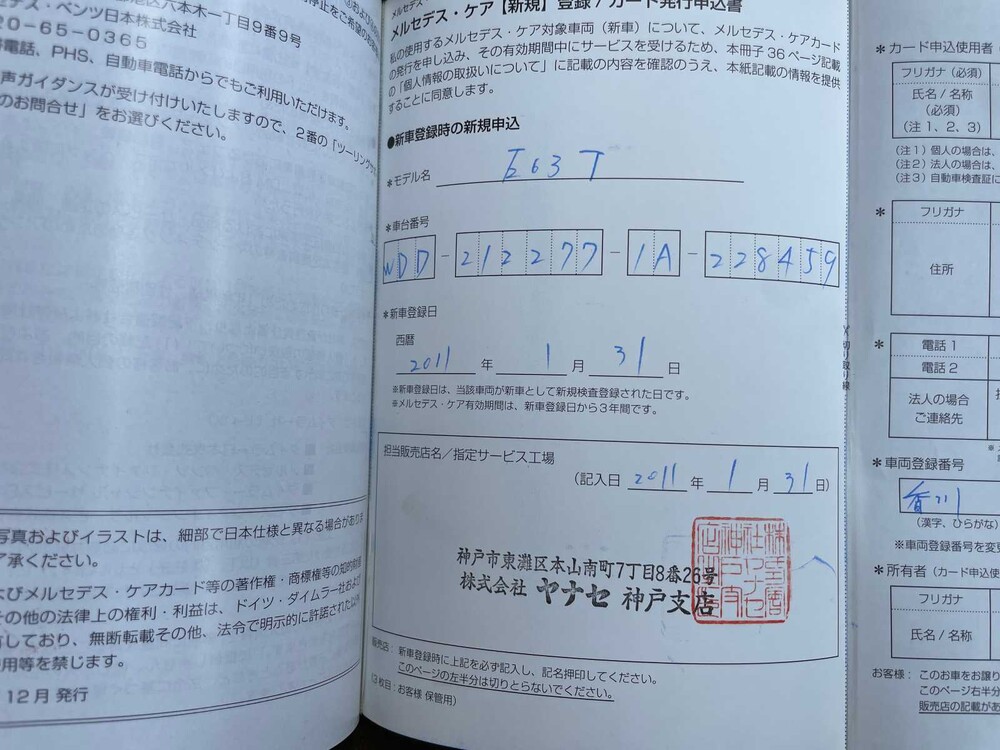 六本木一丁目9番9号
デス・ベンツ日本株式会社
20-65-0365
帯電話、PHS、自動車電話からでもご利用いただけます。
声ガイダンスが受け付けいたしますので、2番の「ツーリング
のお問合せ」をお選びください。
写真およびイラストは、細部で日本仕様と異なる場合があり
了承ください。
よびメルセデス・ケアカード等の著作権・商標権等の知的財産
その他の法律上の権利・利益は、ドイツ・ダイムラー社および
しており、無断転載その他、法令で明示的に許諾された以外
用等を禁じます。
12月 発行
メルセデス・ケア【新規】登録/カード発行申込書
私の使用するメルセデス・ケア対象車両(新車)について、メルセデス・ケアカード
の発行を申し込み、その有効期間中にサービスを受けるため、本冊子36ページ記載
の「個人情報の取扱いについて」に記載の内容を確認のうえ、本紙記載の情報を提供
することに同意します。
●新車登録時の新規申込
*モデル名 E63T
*車台番号
WDD-212277-1A-228459
*新車登録日
西暦
2011 年 1 月 31 日
※新車登録日は、当該車両が新車として新規検査登録された日です。
※メルセデス・ケア有効期間は、新車登録日から3年間です。
担当販売店名/指定サービス工場
(記入日 2011 年 1 月 31 日)
神戸市東灘区本山南町7丁目8番26号
株式会社 ヤナセ 神戸支店
販売店:新車登録時に上記を必ず記入し、記名押印してください。
このページの左半分は切りとらないでください。
(3枚目:お客様 保管用)
切り取り線
*カード申込使用者
フリガナ(必須)
氏名/名称
(必須)
(注1、2、3)
(注1)個人の場合は、
(注2)法人の場合は、
(注3)自動車検査証に
*
フリガナ
住所
*
電話1
電話2
法人の場合
ご連絡先
*車両登録番号
香川
(漢字、ひらがな)
※車両登録番号を変
*所有者(カード申込使
フリガナ
氏名/名称
お客様:このお車をお譲り
このページ右半分
販売店の記載が